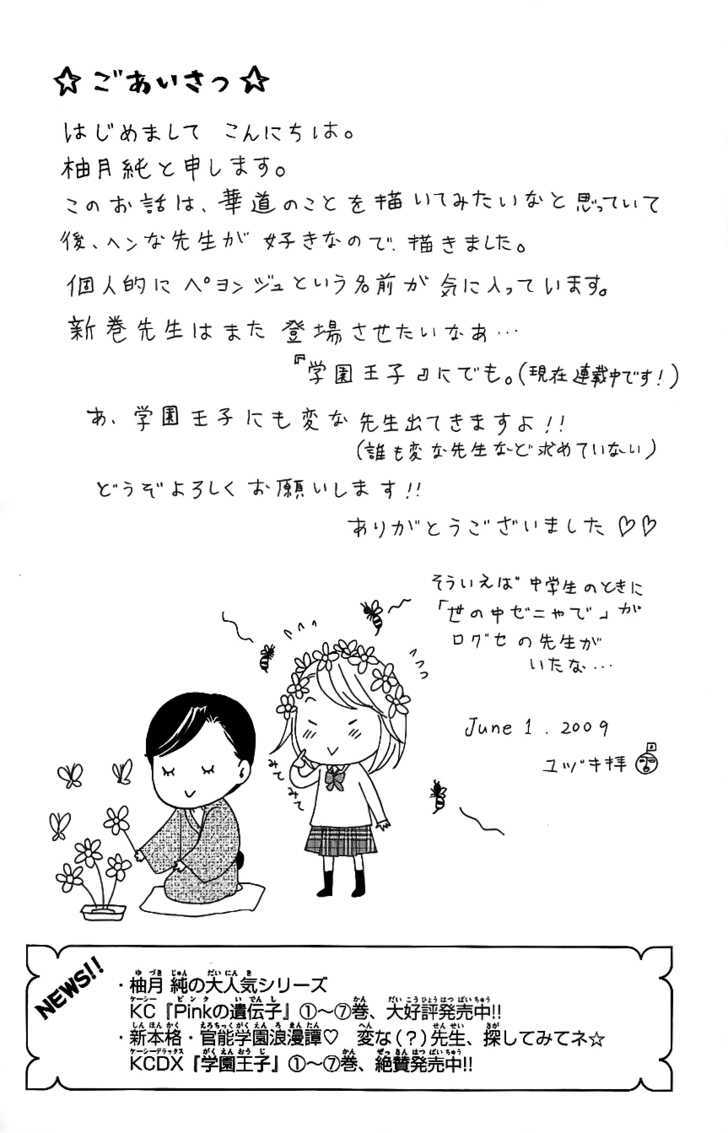 ☆ごあいさつ☆
はじめまして こんにちは。
柚月純と申します。
このお話は、華道のことを描いてみたいなと思っていて
後、ヘンな先生が好きなので、描きました。
個人的にペヨンジュという名前が気に入っています。
新巻先生はまた登場させたいなぁ…
『学園王子』にでも。(現在連載中です!)
あ、学園王子にも変な先生出てきますよ!!
(誰も変な先生など求めていない)
どうぞよろしくお願いします!!
ありがとうございました♡♡
そういえば中学生のときに
「世の中ゼニャで」が
口グセの先生が
いたな…
June 1. 2009
ユヅキ拝
みてみて
NEWS!!
・柚月 純の大人気シリーズ
KC『Pinkの遺伝子』①～⑦巻、大好評発売中!!
・新本格・官能学園浪漫譚♡ 変な(?)先生、探してみてネ☆
KCDX『学園王子』①～⑦巻、絶賛発売中!!